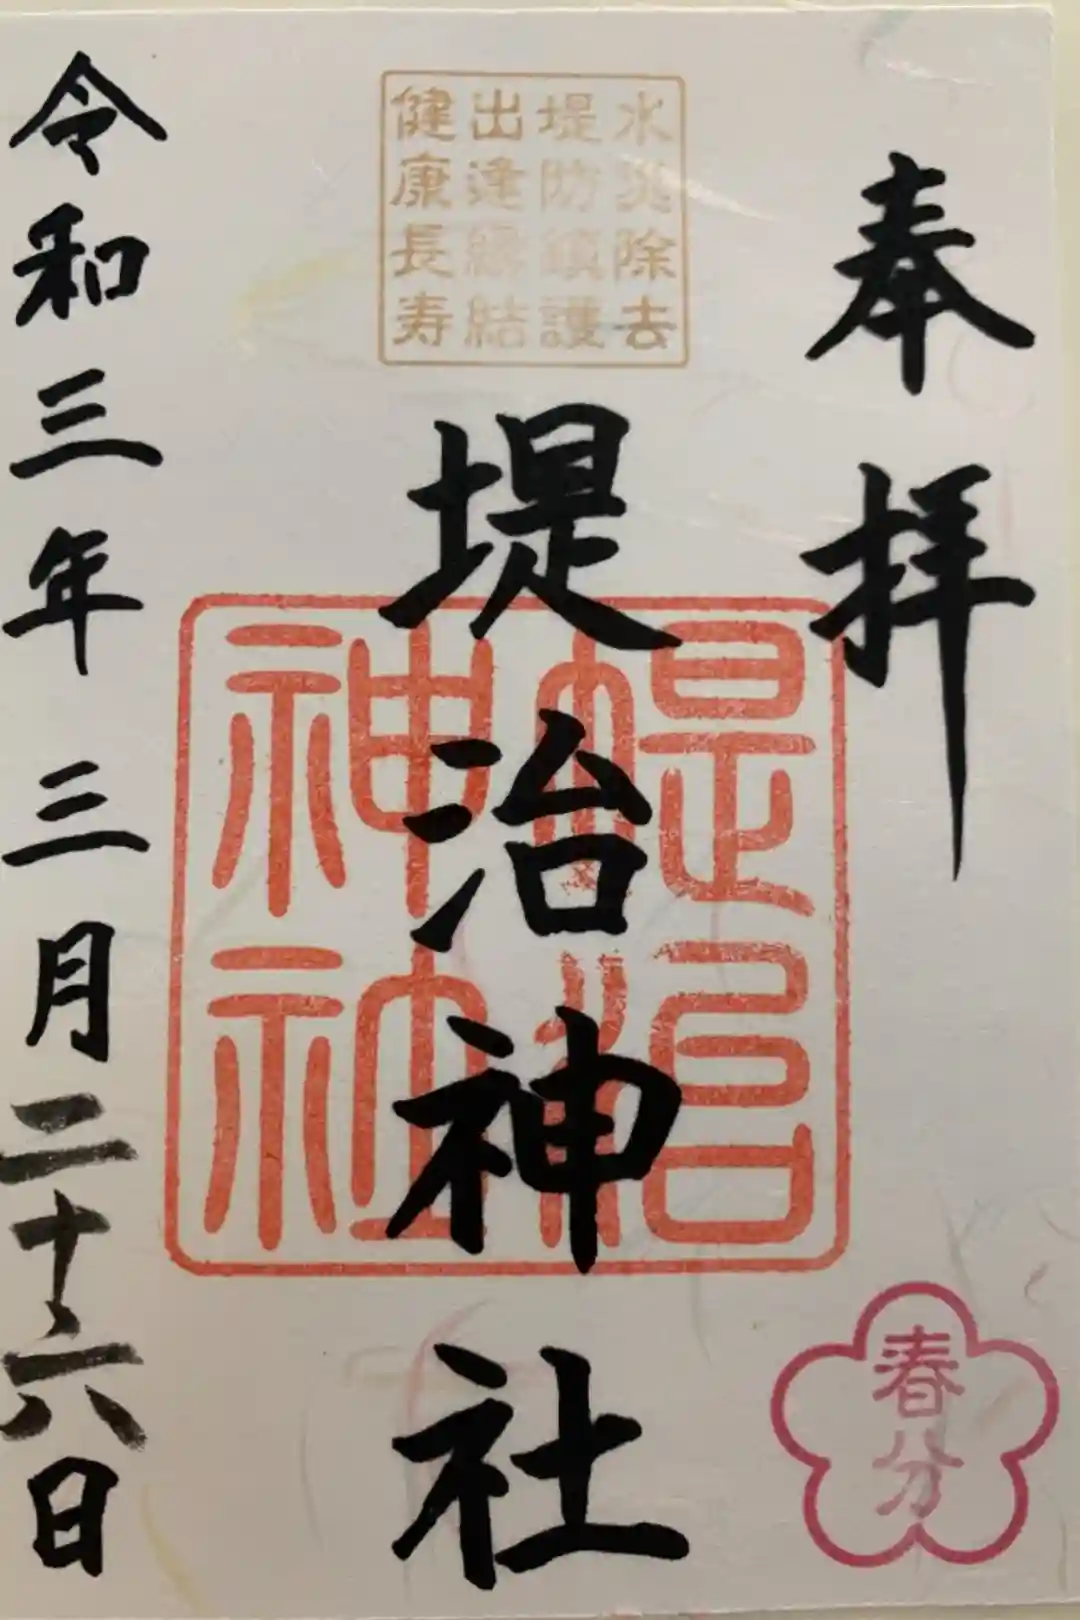 奉拝
水災除去
堤防鎮護
出逢縁結
健康長寿
堤治神社
堤治
神社
春分
令和三年三月二十六日